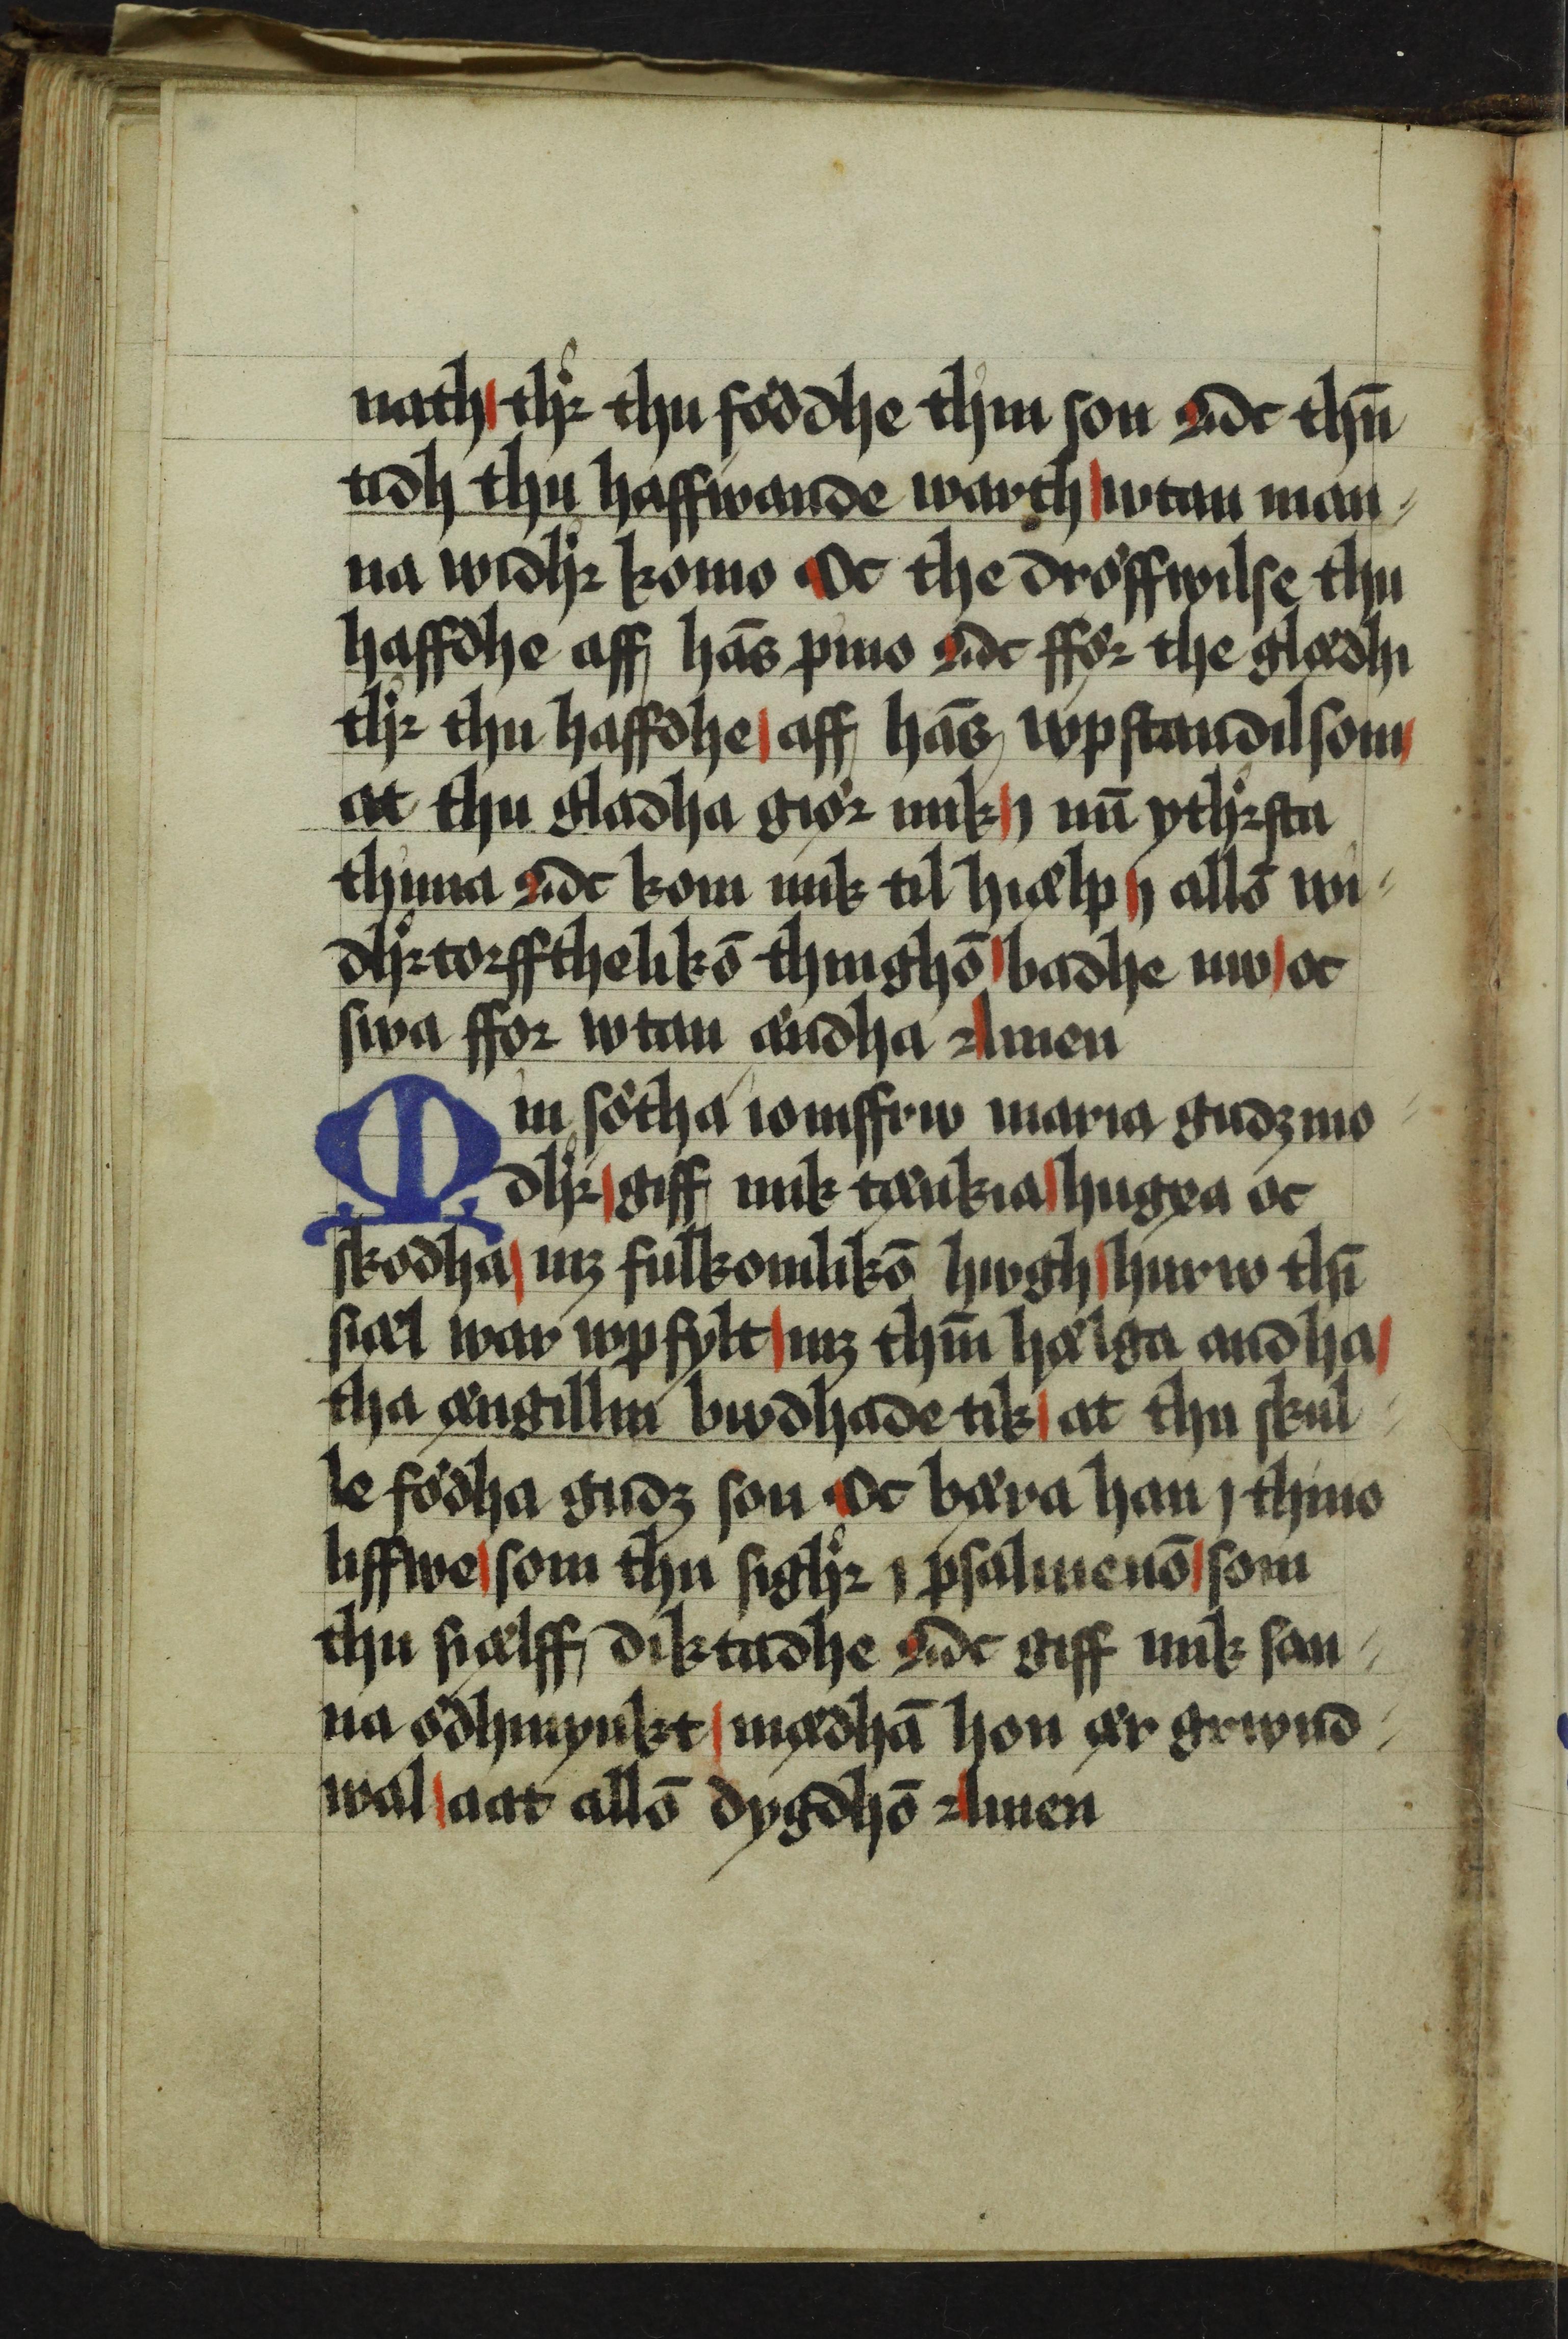 nath thr̾ thu föddhe thin son Oc thn̄
tidh thu haffwande warth wtan man⸗
na widhr̾ komo Oc the dröffwilse thu
haffdhe aff hās pino Oc ffőr the glædhi
thr̾ thu haffdhe aff hās wpstandilsom
at thu gladha giőr mik j mī ythr̾sta
thima Oc kom mik til hiælp j allō wi⸗
dhr̾torffthelikō thinghō badhe nw oc
swa ffor wtan ændha Amen
Min sötha iomffrw maria gudz mo⸗
dhr̾ giff mik tænkia hugxa oc
skodha mz fulkomlikō hwgh hurw thī
siæl war wpfylt mz thm̄ hælga andha
tha ængillin bwdhade tik at thu skul⸗
le födha gudz son Oc bæra han j thino
liffwe som thu sighr̾ j psalmenō som
thu siælff diktadhe Oc giff mik san⸗
na ödhmynkt mædhā hon ær grwnd⸗
wal aat allō dygdhō Amen